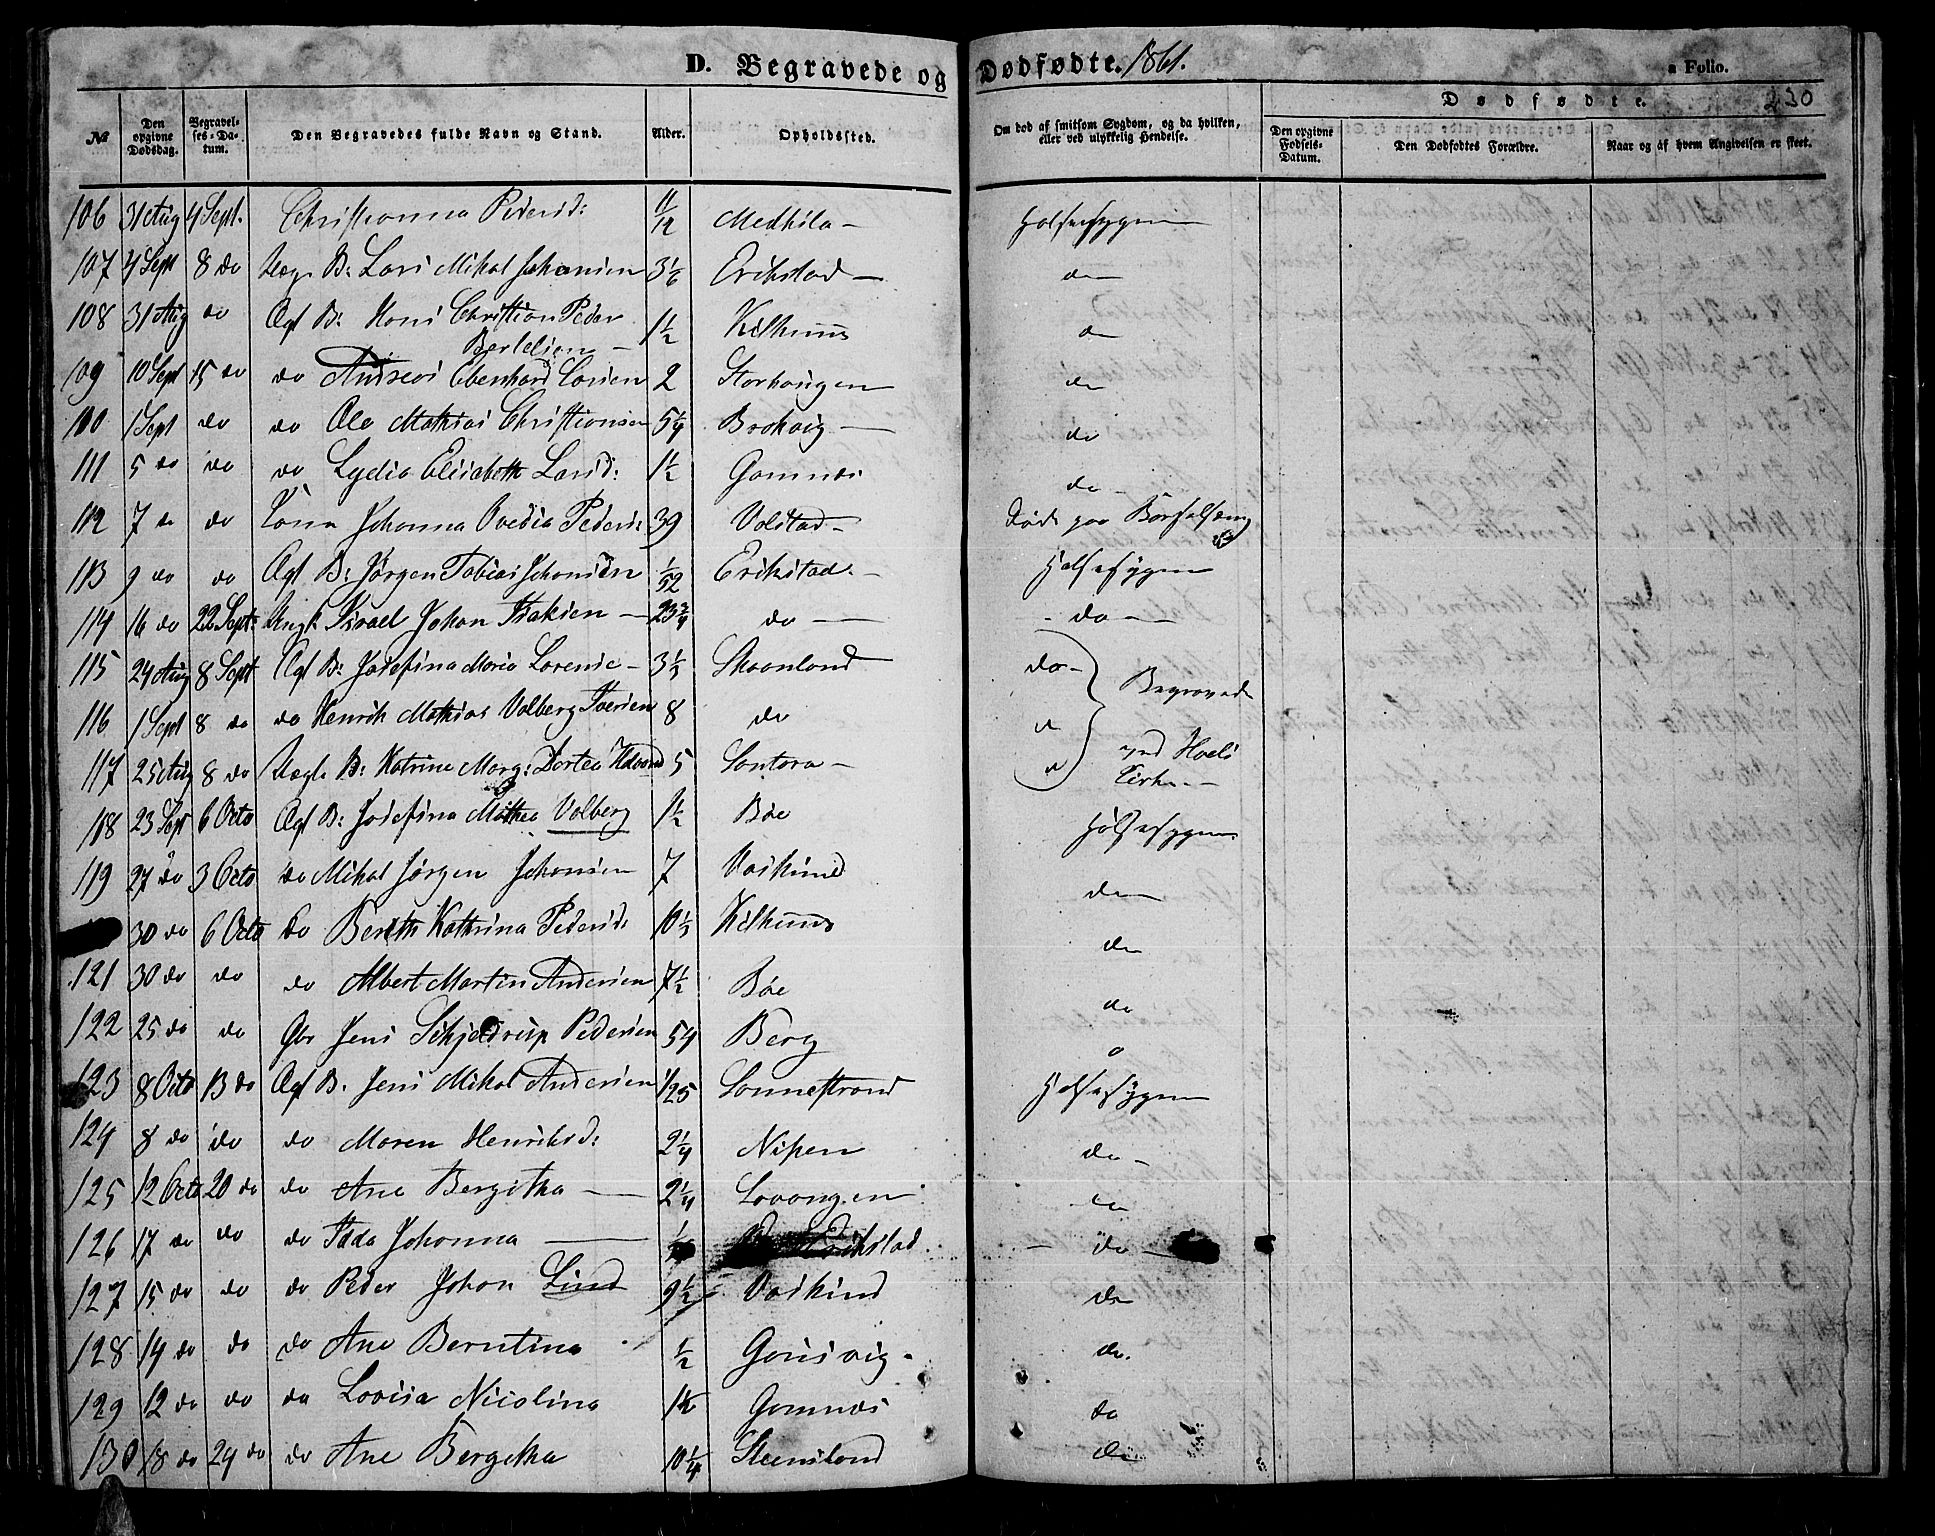 D. Begravede og Dødfødte. 1861. a Folio.
230
№ Den opgivne Dødsdag. Begravelses-Datum. Den Begravedes fulde Navn og Stand. Alder. Opholdssted. Om død af smitsom Sygdom, og da hvilken, eller ved ulykkelig Hendelse. Dødfødte. Den opgivne Fødsels-Datum. Den Dødfødtes Forældre. Naar og af hvem Angivelsen er skeet.
106 31 Aug 4 Sept. Christianna Pedersd: 11/12 Medkila - Halsesygen
107 4 Sept 8 do B: Lars Mikal Johansen 3 1/6 Erikstad - do
108 31 Aug do Ægt B: Hans Christian Peder Bertelsen - 1 1/2 Kilhuus do
109 10 Sept 15 do do Andreas Ebenhard Larsen 2 Storhaugen do
110 1 Sept do do Ole Mathias Christiansen 5 1/4 Brokvig - do
111 5 do do do Lydia Elisabeth Larsd: 1 1/2 Gamnæs do -
112 7 do do Kona Johanna Ovedia Pedersd: 39 Volstad - Død paa Barselseng
113 9 do do Ægt B: Jørgen Tobias Johansen 1/52 Erikstad. - Halsesygen
114 16 do 22 Sept: Ungk. Israel Johan Isaksen - 23 3/4 do - - do -
115 24 Aug 8 Sept Ægt B: Josefina Maria Lorense - 3 1/2 Skaanland do - Begravede
116 1 Sept 8 do do Henrik Mathias Volberg Iversen 8 do do
117 25 Aug 8 do Uægte B: Katrine Marg: Dortea 5 Santora - do ved Hols Kirke -
118 23 Sept 6 Octo Ægt B: Josefina Mathea Volberg 1 1/2 Bøe Halsesygen
119 27 do 3 Octo do Mikal Jørgen Johansen 7 Vaskind do
30 do 6 Octo do Bereth Kathrina Pedersd: 10 1/2 Kilhuus do
121 30 do do do Albert Martin Andersen 7 1/2 Bøe do
122 25 do do Gbr Jens Schjeldrup Pedersen 54 Berg
123 8 Octo 13 do Ægt B. Jens Mikal Andersen 1/25 Sonnestrand Halsesygen
124 8 do do do Maren Henriksd: 2 1/4 Nipen do -
125 12 Octo 20 do do Ane Bergitha - 2 1/4 Lavangen do
126 17 do do do Ida Johanna - Erikstad. - do -
127 15 do do do Peder Johan Lind 9 1/2 Vaskind do
128 14 do do do Ane Berntina 1/2 Gausvig - do.
129 12 do do do Lovisa Nicolina Gamnæs do
130 18 do 24 do do Ane Bergitha 10 1/4 Steensland do